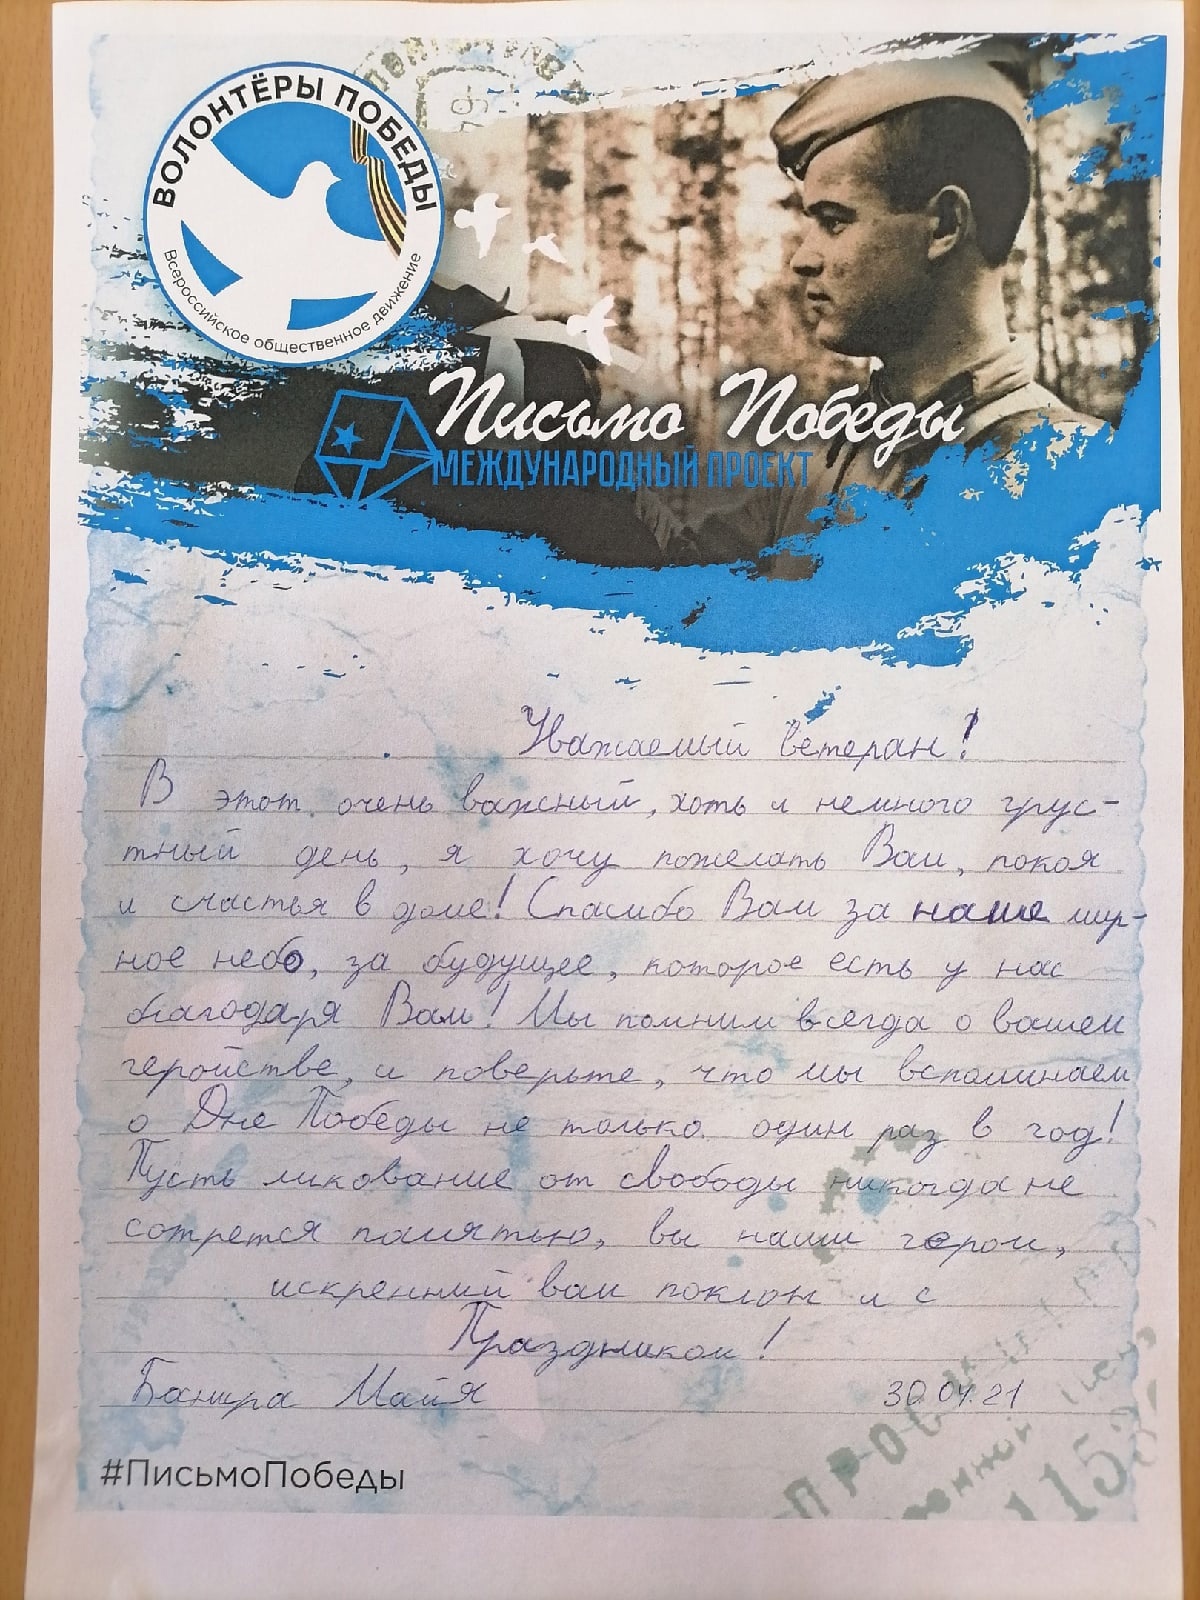 ВОЛОНТЁРЫ ПОБЕДЫ
Всероссийское общественное движение
Письмо Победы
МЕЖДУНАРОДНЫЙ ПРОЕКТ
Уважаемый ветеран!
В этот очень важный, хоть и немного грус-
тный день, я хочу пожелать Вам, покоя
и счастья в доме! Спасибо Вам за наше мир-
ное небо, за будущее, которое есть у нас
благодаря Вам! Мы помним всегда о вашем
геройстве, и поверьте, что мы вспоминаем
о Дне Победы не только один раз в год!
Пусть ликование от свободы никогда не
сотрется памятью, вы наши герои,
искренний вам поклон и с
Праздником!
Майя 30.04.21
#ПисьмоПобеды